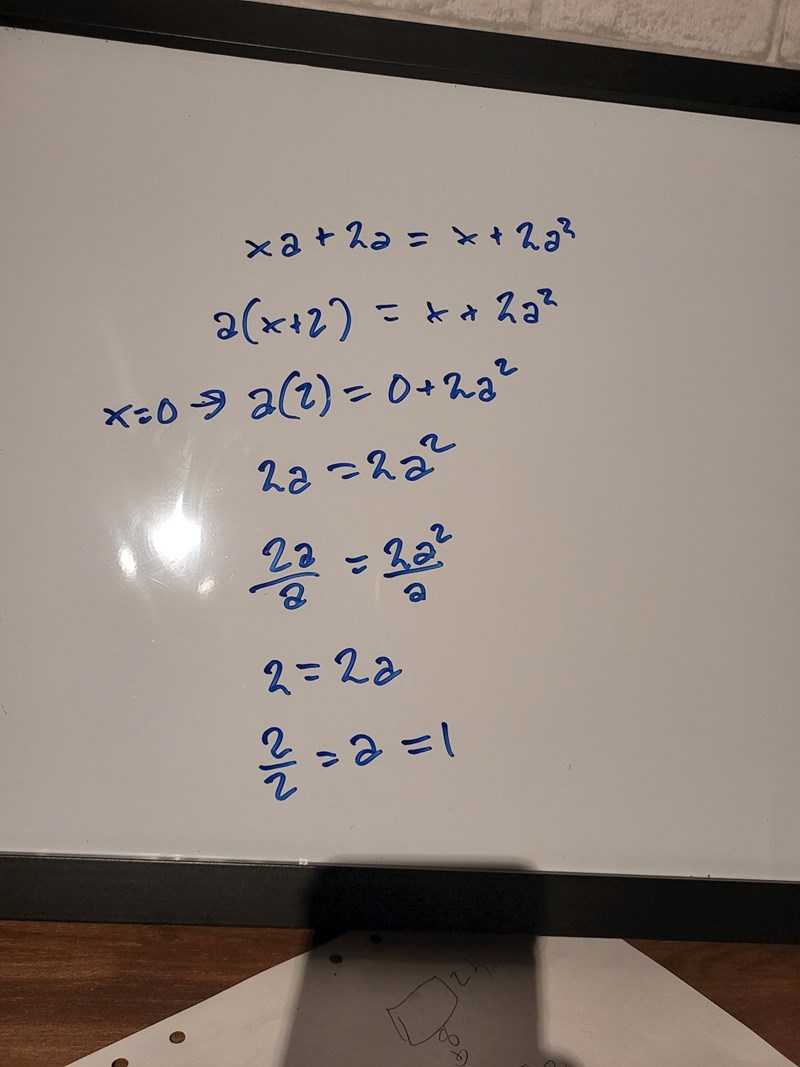 xa + 2a = x + 2a²
a(x+2) = x + 2a²
x=0 → a(2) = 0 + 2a²
2a = 2a²
2a/a = 2a²/a
2 = 2a
2/2 = a = 1